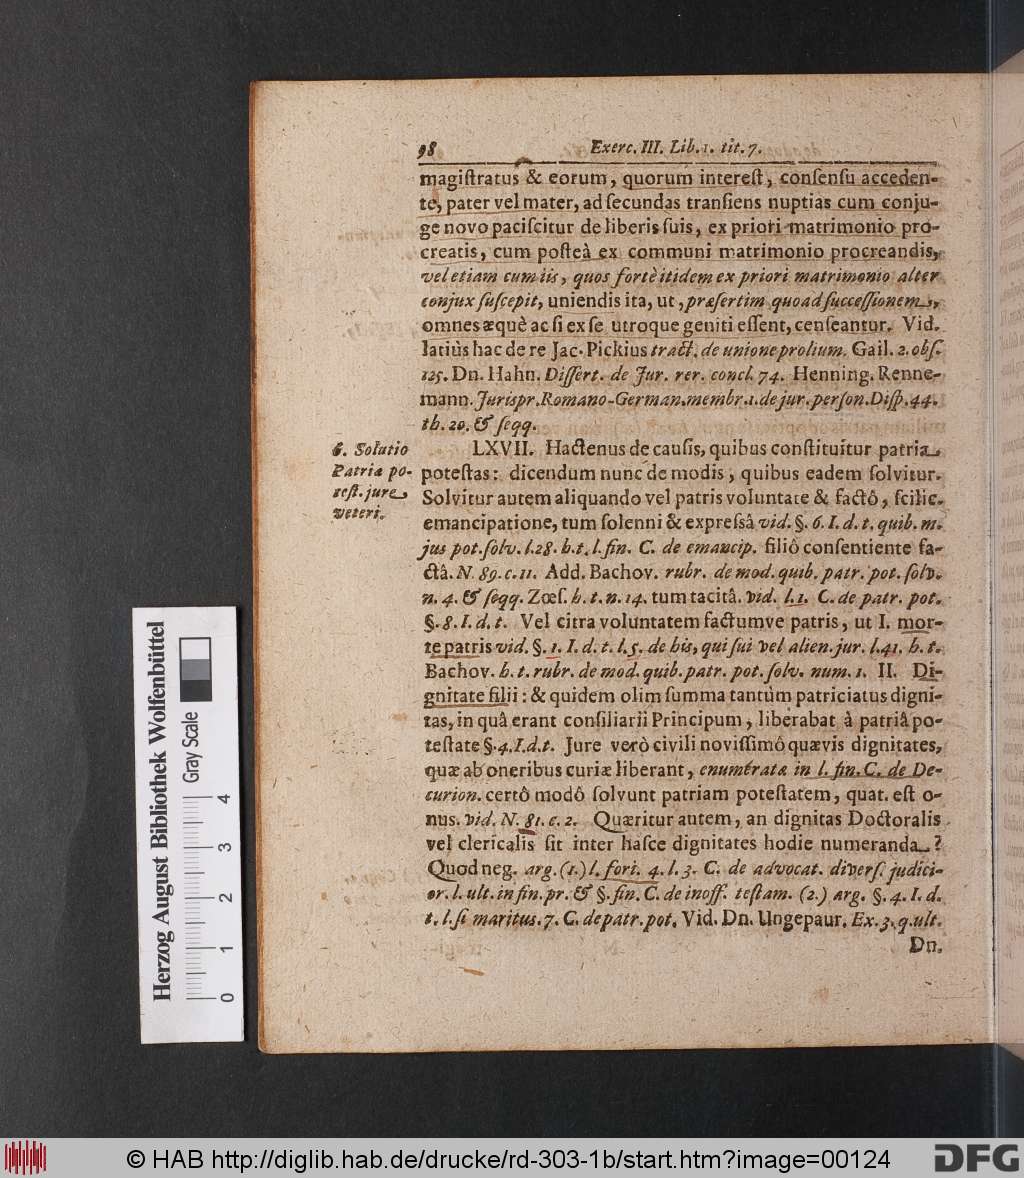 98 Exerc. III. Lib. 1. tit. 7.
magiſtratus & eorum, quorum intereſt, conſenſu acceden-
te, pater vel mater, ad ſecundas tranſiens nuptias cum conju-
ge novo paciſcitur de liberis ſuis, ex priori matrimonio pro-
creatis, cum poſteà ex communi matrimonio procreandis,
vel etiam cum iis, quos fortè itidem ex priori matrimonio alter
conjux ſuſcepit, uniendis ita, ut, præſertim quoad ſucceſſionem,
omnes æquè ac ſi ex ſe utroque geniti eſſent, cenſeantur. Vid.
latiùs hac de re Jac. Pickius tract. de unione prolium. Gail. 2. obſ.
125. Dn. Hahn. Diſſert. de Jur. rer. concl. 74. Henning. Renne-
mann. Jurispr. Romano-German. membr. 1. de jur. perſon. Diſp. 44.
th. 20. & ſeqq.
6. Solutio
Patriæ po-
teſt. jure
veteri.
LXVII. Hactenus de cauſis, quibus conſtituitur patria
poteſtas: dicendum nunc de modis, quibus eadem ſolvitur.
Solvitur autem aliquando vel patris voluntate & factô, ſcilic.
emancipatione, tum ſolenni & expreſsâ vid. §. 6. I. d. t. quib. m.
jus pot. ſolv. l. 28. h. t. l. fin. C. de emancip. filiô conſentiente fa-
ctâ. N. 89. c. 11. Add. Bachov. rubr. de mod. quib. patr. pot. ſolv.
n. 4. & ſeqq. Zœſ. h. t. n. 14. tum tacitâ. vid. l. 1. C. de patr. pot.
§. 8. I. d. t. Vel citra voluntatem factumve patris, ut I. mor-
te patris vid. §. 1. I. d. t. l. 5. de his, qui ſui vel alien. jur. l. 41. h. t.
Bachov. h. t. rubr. de mod. quib. patr. pot. ſolv. num. 1. II. Di-
gnitate filii: & quidem olim ſumma tantùm patriciatus digni-
tas, in quâ erant conſiliarii Principum, liberabat à patriâ po-
teſtate §. 4. I. d. t. Jure verò civili noviſſimô quævis dignitates,
quæ ab oneribus curiæ liberant, enumératæ in l. fin. C. de De-
curion. certô modô ſolvunt patriam poteſtatem, quat. eſt o-
nus. vid. N. 81. c. 2. Quæritur autem, an dignitas Doctoralis
vel clericalis ſit inter haſce dignitates hodie numeranda?
Quod neg. arg. (1.) l. fori. 4. l. 3. C. de advocat. diverſ. judici-
or. l. ult. in fin. pr. & §. fin. C. de inoff. teſtam. (2.) arg. §. 4. I. d.
t. l. ſi maritus. 7. C. de patr. pot. Vid. Dn. Ungepaur. Ex. 3. q. ult.
Dn.
Herzog August Bibliothek Wolfenbüttel
Gray Scale
0 1 2 3 4
© HAB http://diglib.hab.de/drucke/rd-303-1b/start.htm?image=00124
DFG